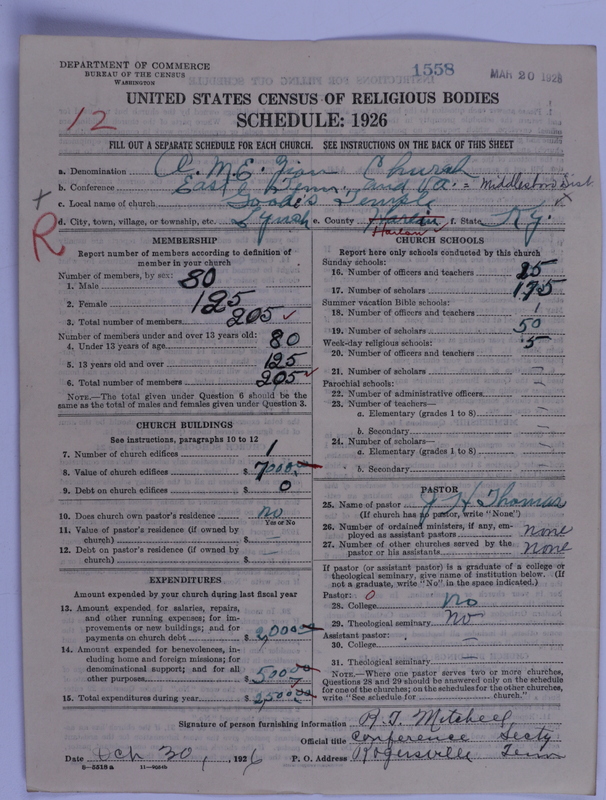 DEPARTMENT OF COMMERCE
BUREAU OF THE CENSUS
WASHINGTON
1558
MAR 20 1928
UNITED STATES CENSUS OF RELIGIOUS BODIES
SCHEDULE: 1926
12
FILL OUT A SEPARATE SCHEDULE FOR EACH CHURCH. SEE INSTRUCTIONS ON THE BACK OF THIS SHEET
a. Denomination A. M. E. Zion Church
b. Conference East Tenn. and Va. = Middlesboro Dist.
c. Local name of church Temple
d. City, town, village, or township, etc. Lynch e. County Harlan f. State Ky.
Harlan
R
MEMBERSHIP
Report number of members according to definition of member in your church
Number of members, by sex:
1. Male 80
2. Female 125
3. Total number of members 205
Number of members under and over 13 years old:
4. Under 13 years of age 80
5. 13 years old and over 125
6. Total number of members 205
NOTE.—The total given under Question 6 should be the
same as the total of males and females given under Question 3.
CHURCH BUILDINGS
See instructions, paragraphs 10 to 12
7. Number of church edifices 1
8. Value of church edifices $ 7000
9. Debt on church edifices $ 0
10. Does church own pastor's residence? No
Yes or No
11. Value of pastor's residence (if owned by
church) $ —
12. Debt on pastor's residence (if owned by
church) $ —
EXPENDITURES
Amount expended by your church during last fiscal year
13. Amount expended for salaries, repairs,
and other running expenses; for im-
provements or new buildings; and for
payments on church debt $ 2,000
14. Amount expended for benevolences, in-
cluding home and foreign missions; for
denominational support; and for all
other purposes $ 500
15. Total expenditures during year $ 2,500
CHURCH SCHOOLS
Report here only schools conducted by this church
Sunday schools:
16. Number of officers and teachers 25
17. Number of scholars 175
Summer vacation Bible schools:
18. Number of officers and teachers 1
19. Number of scholars 50
Week-day religious schools: 5
20. Number of officers and teachers
21. Number of scholars —
Parochial schools:
22. Number of administrative officers —
23. Number of teachers—
a. Elementary (grades 1 to 8) —
b. Secondary —
24. Number of scholars—
a. Elementary (grades 1 to 8) —
b. Secondary —
PASTOR
25. Name of pastor J. H. Thomas
(If church has no pastor, write "None")
26. Number of ordained ministers, if any, em-
ployed as assistant pastors none
27. Number of other churches served by the
pastor or his assistants none
If pastor (or assistant pastor) is a graduate of a college or
theological seminary, give name of institution below. (If
not a graduate, write "No" in the space indicated.)
Pastor: 0
28. College No
29. Theological seminary No
Assistant pastor:
30. College —
31. Theological seminary —
NOTE.—Where one pastor serves two or more churches,
Questions 28 and 29 should be answered only on the schedule
for one of the churches; on the schedules for the other churches,
write "See schedule for church."
Signature of person furnishing information Mitchell
Official title Conference Secty
Date Oct 30, 1926 P. O. Address Rogersville Tenn
8—5518 a